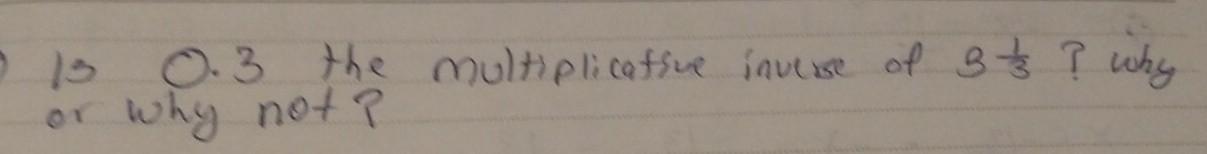 Is 0.3 the multiplicative inverse of 3 1/3 ? why
or why not ?